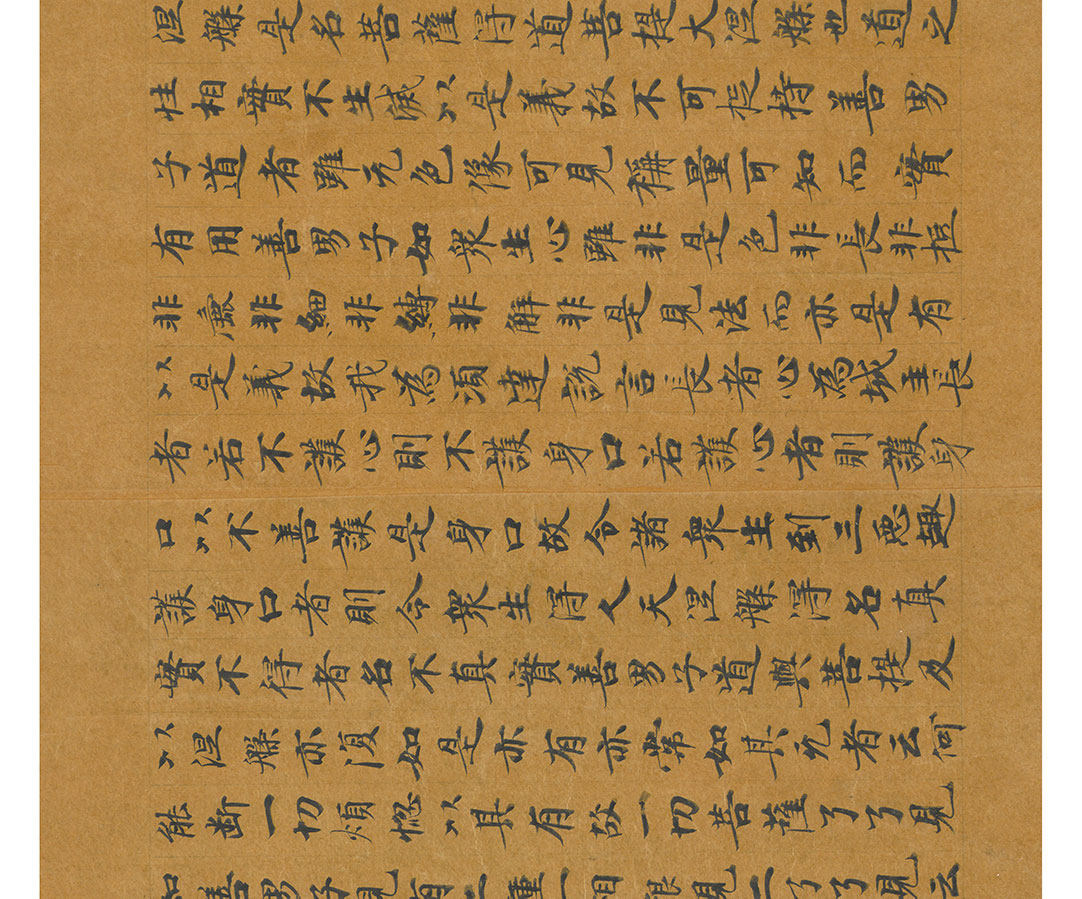 涅槃是名菩薩得道菩提大涅槃也道之
性相實不生滅以是義故不可捉持善男
子道者雖无色像可見稱量可知而實
有用善男子如衆生心雖非是色非長非短
非麁非細非縛非解非是見法而亦是有
以是義故我為須達說言長者心為城主長
者若不護心則不護身口若護心者則護身
口以不善護是身口故令諸衆生到三惡趣
護身口者則令衆生得人天涅槃得名真
實不得者名不真實善男子道與菩提及
以涅槃亦復如是亦有亦常如其无者云何
能斷一切煩惱以其有故一切菩薩了了見
知善男子見有二種一相貌見二了了見云